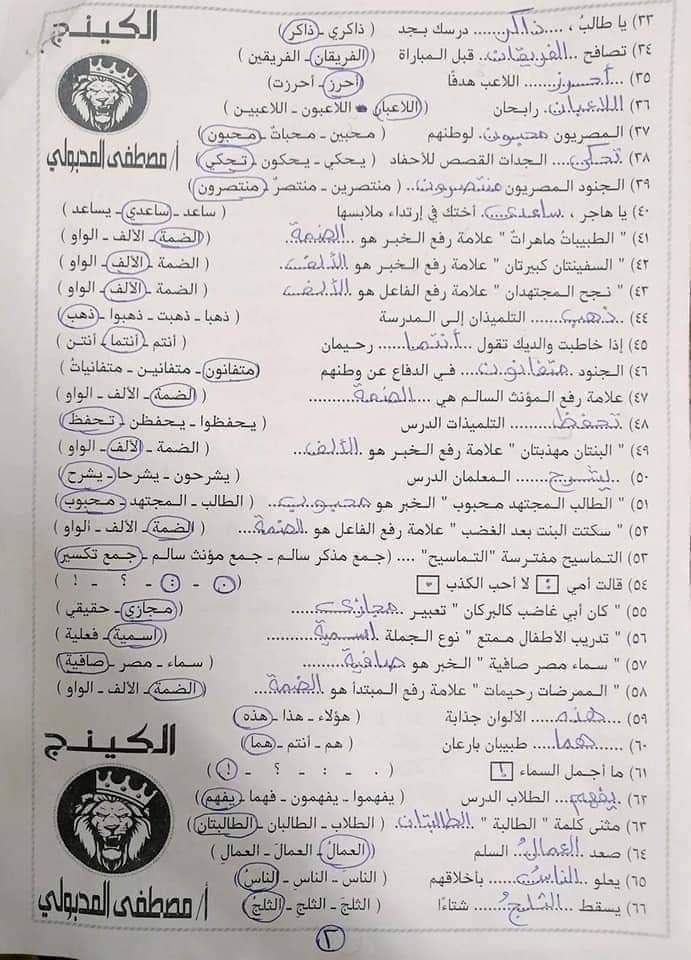 الكينج
أ/ مصطفى المدبولي
٣٣) يا طالبُ ، ....ذاكر.... درسك بجد ( ذاكري - ذاكر )
٣٤) تصافح ..الفريقان.. قبل المباراة ( الفريقان - الفريقين )
٣٥) ...أحرز... اللاعب هدفًا ( أحرز - أحرزت )
٣٦) ..اللاعبان.. رابحان ( اللاعبان - اللاعبون - اللاعبين )
٣٧) المصريون محبون.. لوطنهم ( محبين - محباتٌ - محبون )
٣٨) ..تحكي... الجدات القصص للأحفاد ( يحكي - يحكون - تحكي )
٣٩) الجنود المصريون منتصرون.. ( منتصرين - منتصرٌ - منتصرون )
٤٠) يا هاجر ، ساعدي... أختك في إرتداء ملابسها ( ساعد - ساعدي - يساعد )
٤١) " الطبيباتُ ماهراتٌ " علامة رفع الخبر هو ..الضمة... ( الضمة - الألف - الواو )
٤٢) " السفينتان كبيرتان " علامة رفع الخبر هو ..الألف.. ( الضمة - الألف - الواو )
٤٣) " نجح المجتهدان " علامة رفع الفاعل هو ..الألف.. ( الضمة - الألف - الواو )
٤٤) ..ذهب........ التلميذان إلى المدرسة ( ذهبا - ذهبت - ذهبوا - ذهب )
٤٥) إذا خاطبت والديك تقول ..أنتما.... رحيمان ( أنتم - أنتما - أنتن )
٤٦) الجنود ..متفانون... في الدفاع عن وطنهم ( متفانون - متفانين - متفانياتٌ )
٤٧) علامة رفع المؤنث السالم هي ....الضمة.... ( الضمة - الألف - الواو )
٤٨) ..تحفظ........ التلميذات الدرس ( يحفظوا - يحفظن - تحفظ )
٤٩) " البنتان مهذبتان " علامة رفع الخبر هو ..الألف.. ( الضمة - الألف - الواو )
٥٠) ..يشرح........ المعلمان الدرس ( يشرحون - يشرحا - يشرح )
٥١) " الطالب المجتهد محبوب " الخبر هو ..محبوب.. ( الطالب - المجتهد - محبوب )
٥٢) " سكتت البنت بعد الغضب " علامة رفع الفاعل هو ..الضمة.. ( الضمة - الألف - الواو )
٥٣) التماسيح مفترسة "التماسيح" .... (جمع مذكر سالم - جمع مؤنث سالم - جمع تكسير )
٥٤) قالت أمي [:] لا أحب الكذب [.] ( . - : - ؟ - ! )
٥٥) " كان أبي غاضب كالبركان " تعبير ..مجازي........ ( مجازي - حقيقي )
٥٦) " تدريب الأطفال ممتع " نوع الجملة اسمية........ ( اسمية - فعلية )
٥٧) " سماء مصر صافية " الخبر هو ..صافية........ ( سماء - مصر - صافية )
٥٨) " الممرضات رحيمات " علامة رفع المبتدأ هو ..الضمة.. ( الضمة - الألف - الواو )
٥٩) ..هذه........ الألوان جذابة ( هؤلاء - هذا - هذه )
٦٠) ..هما...... طبيبان بارعان ( هم - أنتم - هما )
٦١) ما أجمل السماء [!] ( . - : - ؟ - ! )
٦٢) ..يفهم... الطلاب الدرس ( يفهموا - يفهمون - فهما - يفهم )
٦٣) مثنى كلمة " الطالبة " ..الطالبتان.. ( الطلاب - الطالبان - الطالبتان )
٦٤) صعد ..العمالُ.. السلم ( العمالُ - العمالَ - العمالِ )
٦٥) يعلو ..الناسُ.. بأخلاقهم ( الناسَ - الناسِ - الناسُ )
٦٦) يسقط ..الثلجُ.. شتاءًا ( الثلجَ - الثلجِ - الثلجُ )
الكينج
أ/ مصطفى المدبولي
٢